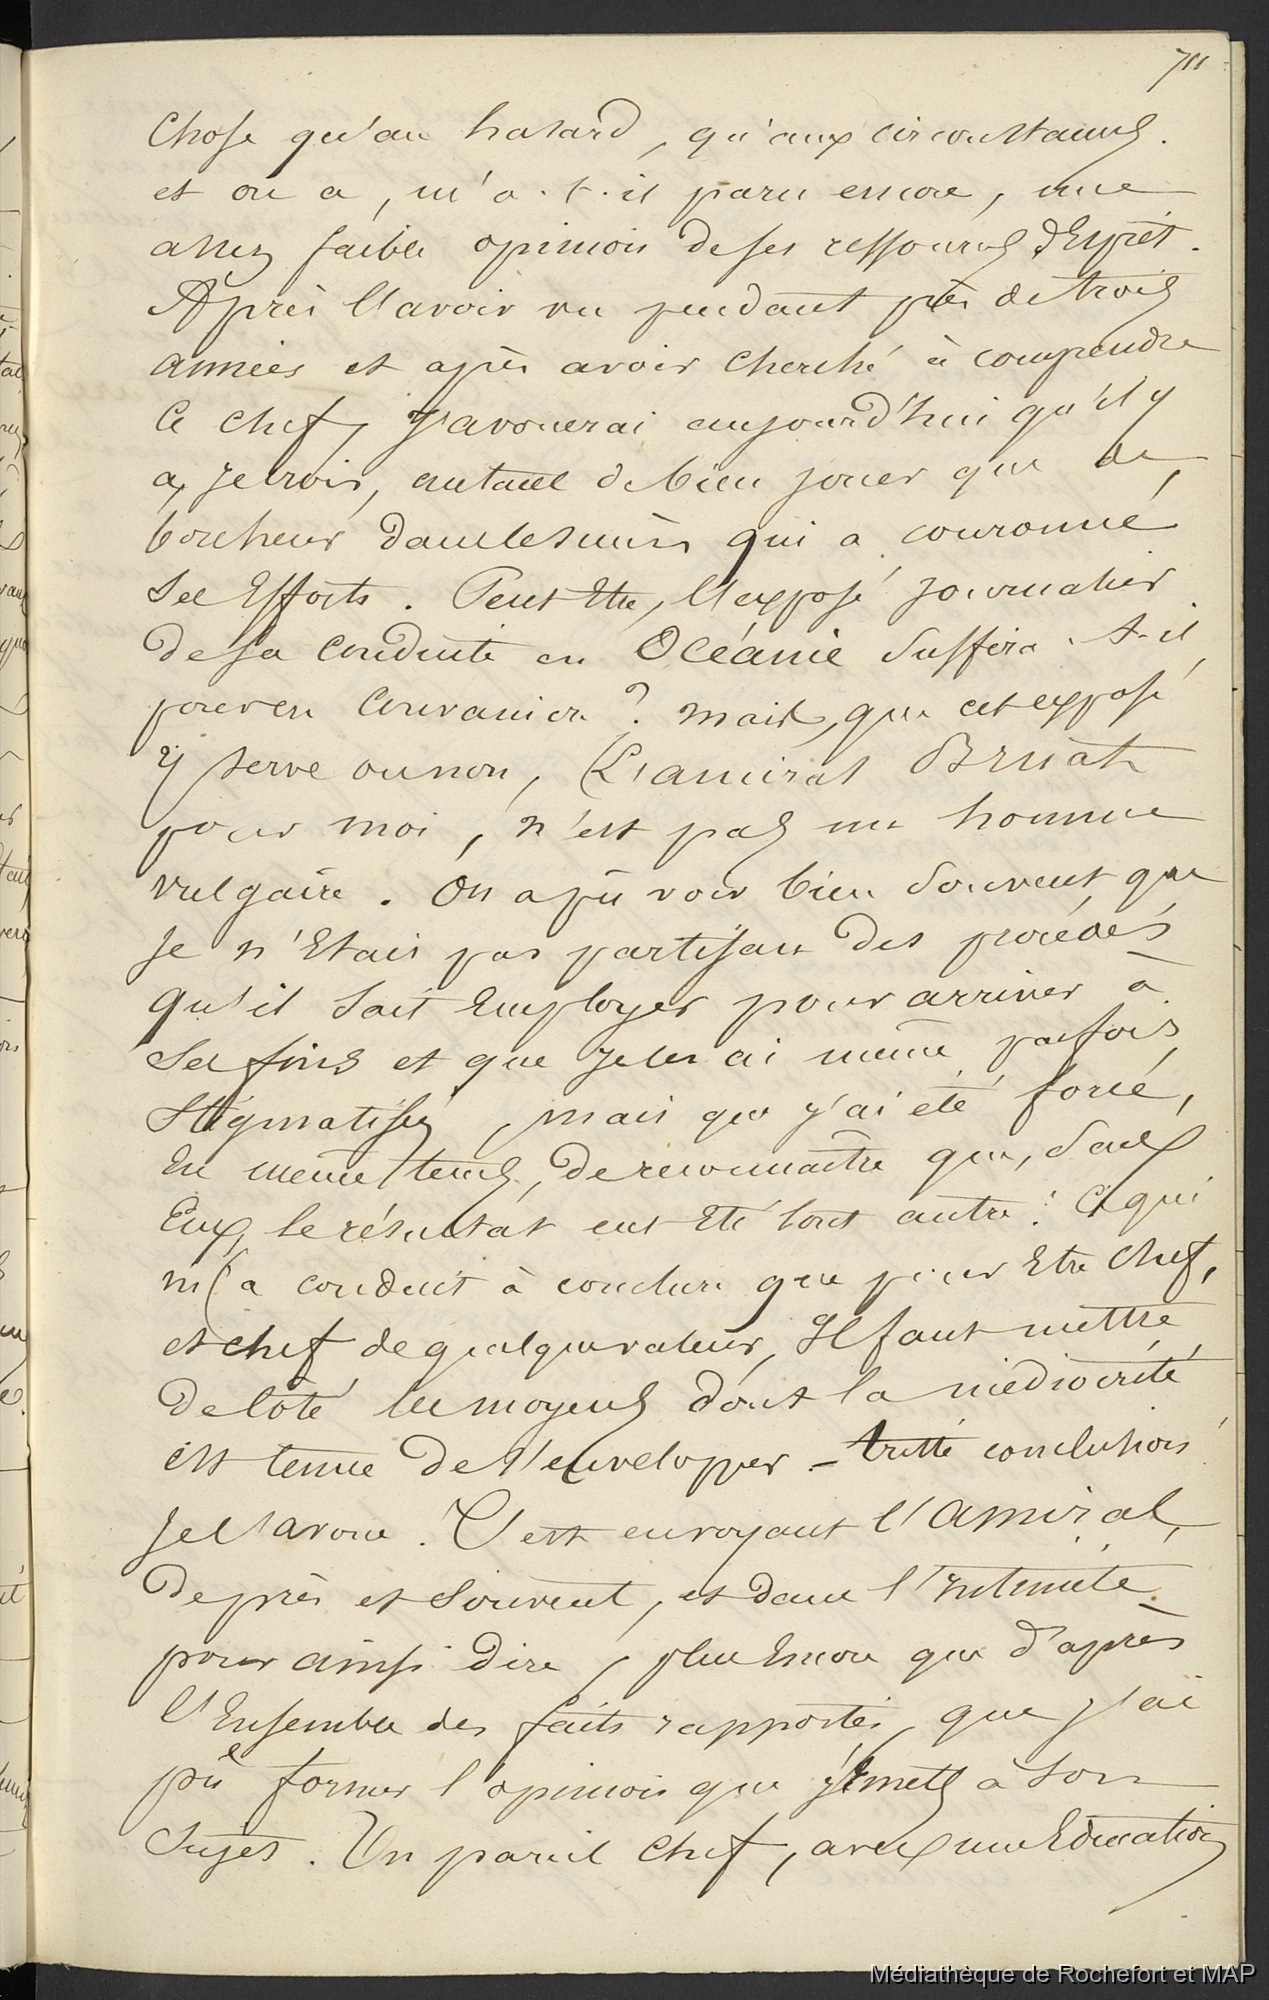 711
chose qu'au hasard, qu'aux circonstances.
et on a, m'a-t-il paru encore, une
assez faible opinion de ses ressources d'Esprit.
Après l'avoir vu pendant près de trois
années et après avoir cherché à comprendre
ce chef, J'avouerai aujourd'hui qu'il y
a, je crois, autant de bien jouer que de
bonheur dans le succès qui a couronné
ses Efforts. Peut Etre, l'exposé journalier
de sa conduite en Océanie suffira-t-il
pour en convaincre? mais, que cet exposé
y serve ou non, L'amiral Bruat
pour moi, n'est pas un homme
vulgaire. On a pû voir bien souvent que
je n'Etais pas partisan des procédés
qu'il sait Employer pour arriver à
ses fins et que je les ai même parfois
stigmatisés, mais que j'ai été forcé,
En même tems, de reconnaître que, sans
Eux, le résultat eut Eté tout autre: Ce qui
m'a conduit à conclure que pour Etre chef,
et chef de quelque valeur, Il faut mettre
de côté les moyens dont la médiocrité
est tenue de s'envelopper - triste conclusion
je l'avoue. C'est en voyant l'amiral,
de près et souvent, et dans l'intimité
pour ainsi dire, plus Encore que d'après
l'Ensemble des faits rapportés, que j'ai
pû former l'opinion que j'Emets à son
sujet. Un pareil chef, avec une Education
Médiathèque de Rochefort et MAP